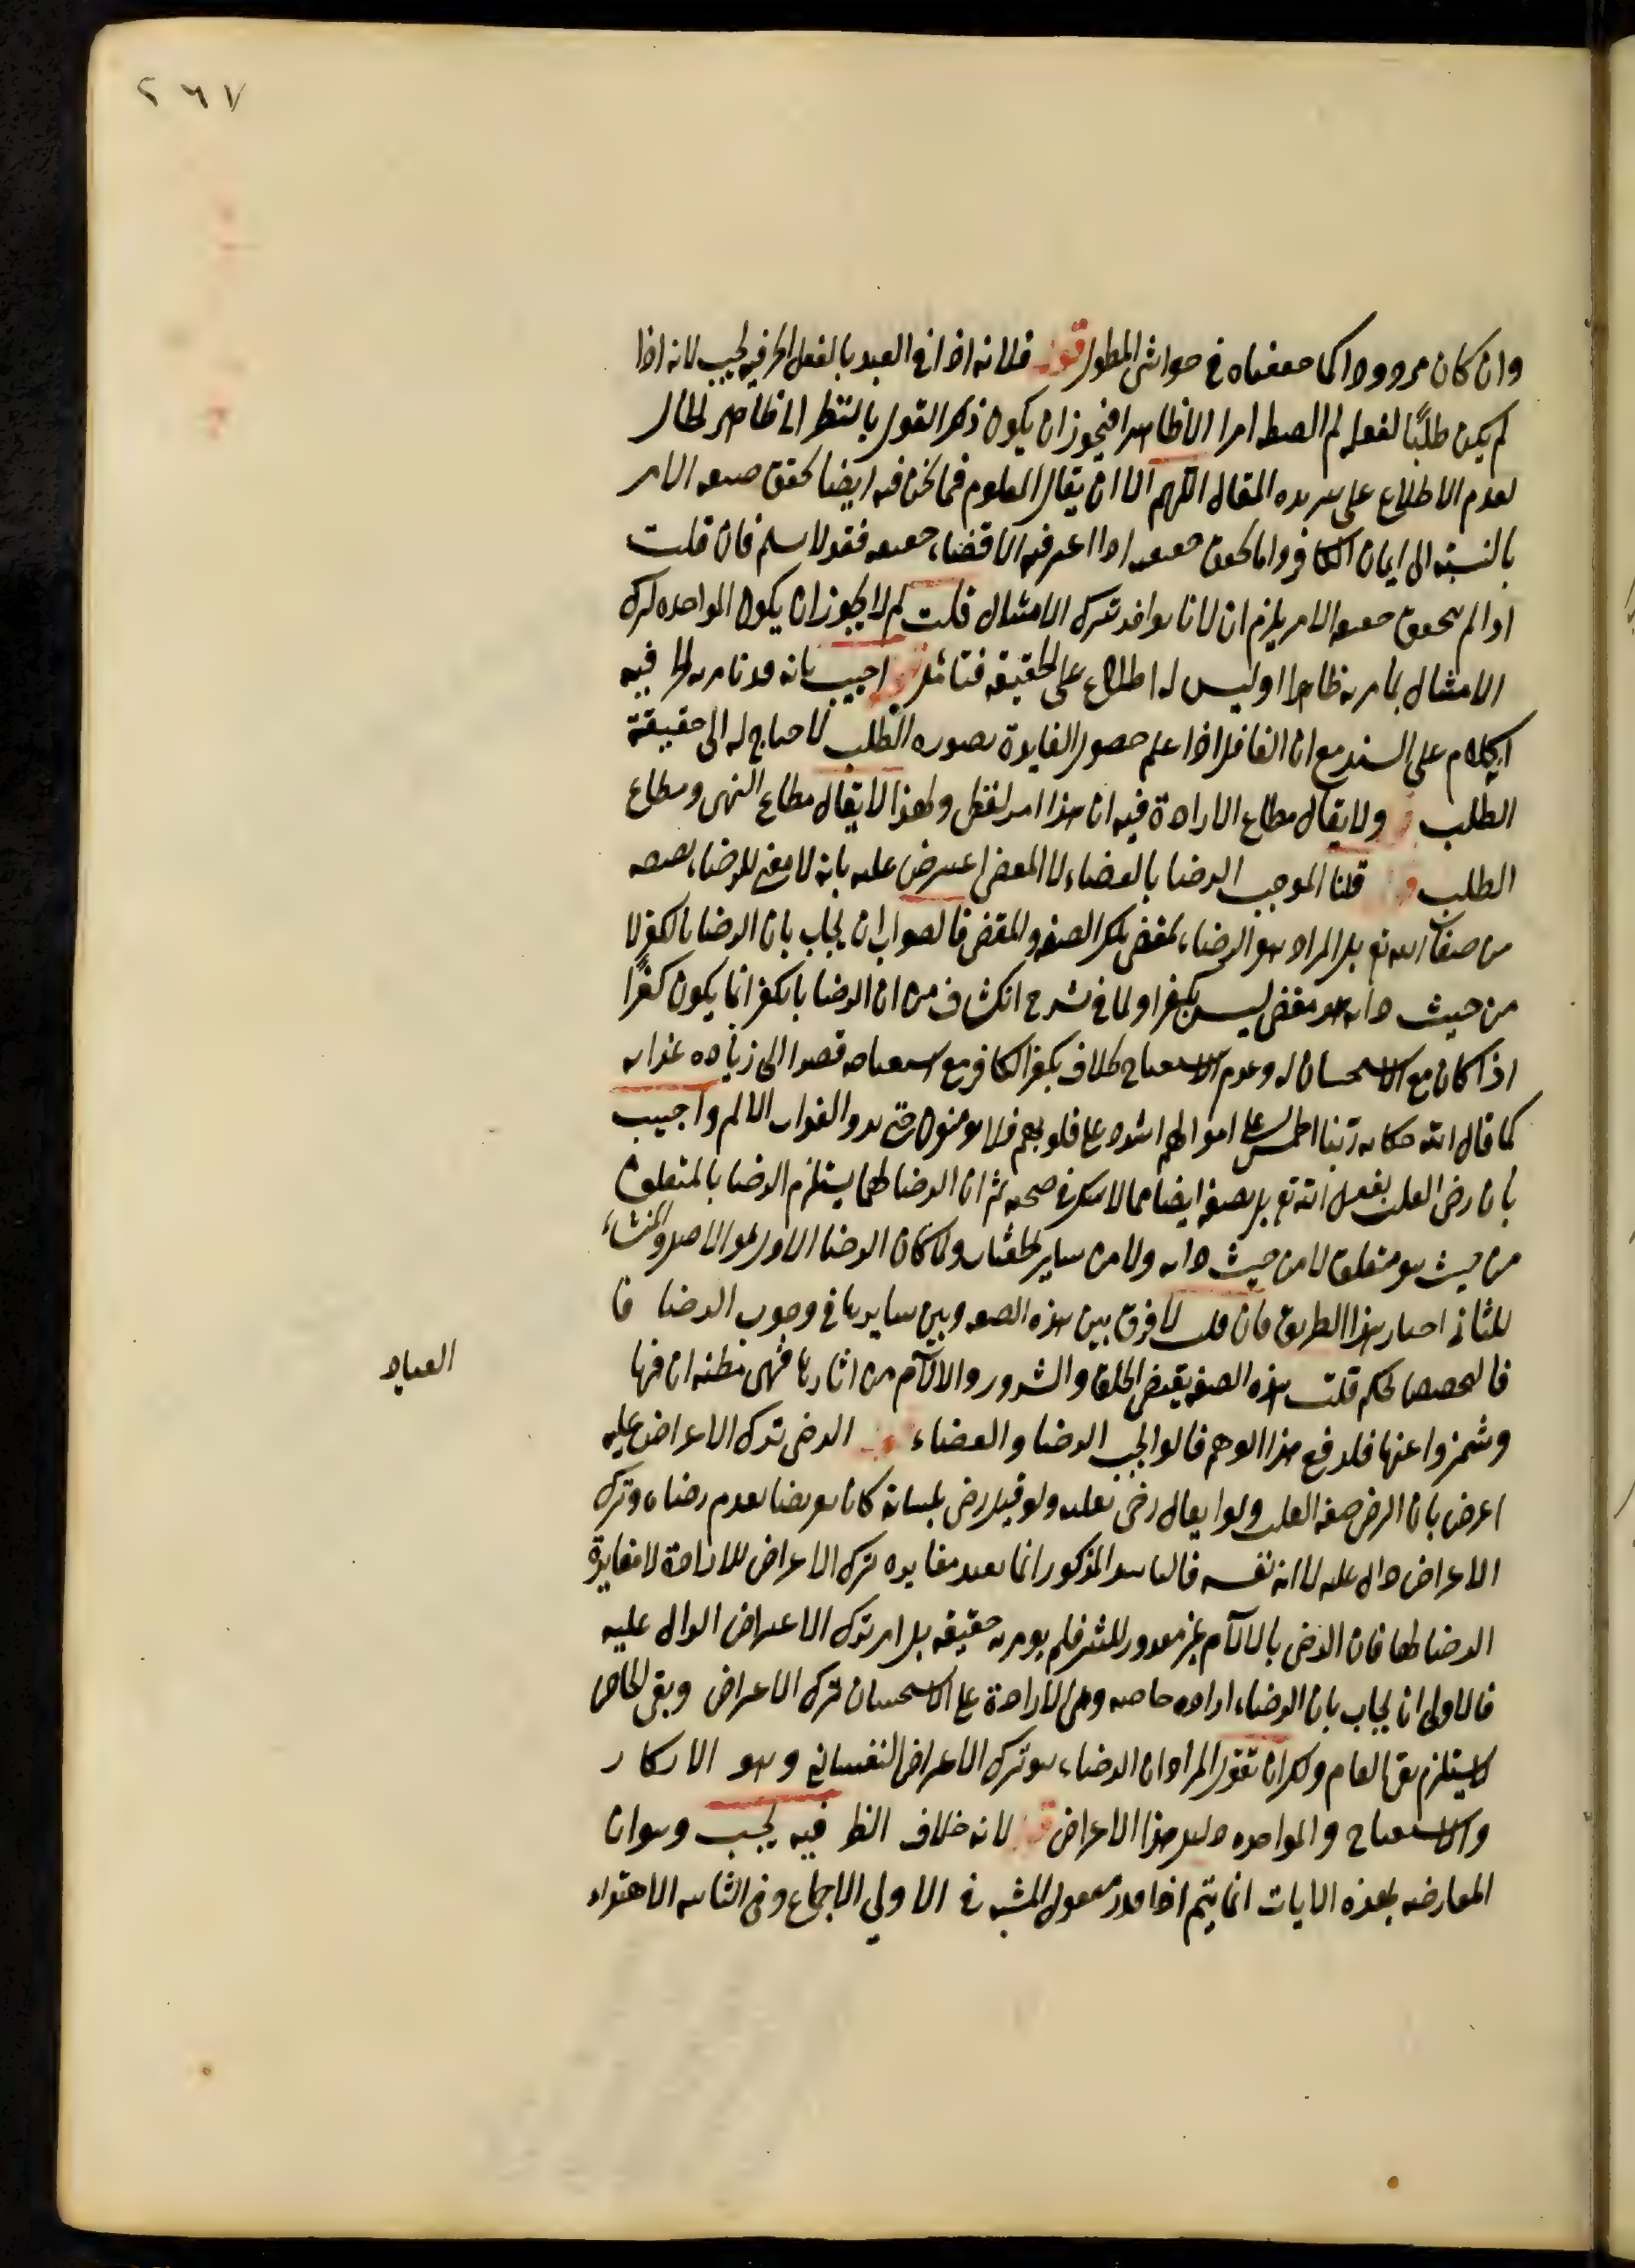 ٢٦٧
وان كان مردودا كما حققناه في حواشي المطول قوله فلانه اذا اتى العبد بالفعل الخ فيه بحث لانه اذا
لم يكن طلبًا لفعله لم الصيغة امرا الا ظاهرا فيجوز ان يكون ذكر القول بالنظر الى ظاهر الحال
لعدم الاطلاع على سريرة المقال اللهم الا ان يقال المعلوم فيما نحن فيه ايضا تحقق صيغة الامر
بالنسبة الى ايمان الكافر واما كون حقيقة اذا اعترف الاقتضاء حقيقة فقد لا يسلم فان قلت
اذا لم يتحقق حقيقة الامر يلزم ان لا يؤاخذ بترك الامتثال قلت لم لا يجوز ان يكون المؤاخذة لترك
الامتثال بامر به ظاهرا اذ ليس له اطلاع على الحقيقة فتامل قوله اجيب بانه قد يامر به الخ فيه
كلام على السند مع ان العاقل اذا علم حصول الفايدة بصورة الطلب لا حتاج له الى حقيقة
الطلب قوله ولا يقال مطاع الارادة فيه ان هذا امر لفظي ولهذا لا يقال مطاع النهي ومطاع
الطلب قوله قلنا الموجب الرضا بالقضاء لا المقضي اعترض عليه بانه لا معنى للرضاء بصفة
من صفات الله تع بل المراد هو الرضاء بمقتضى تلك الصفة والمقضي فالصواب ان يجاب بان الرضا بالكفر لا
من حيث ذاته بل هو مقضي ليس بكفر اولما في شرح الكشاف من ان الرضا بالكفر انما يكون كفرًا
اذا كان مع الاستحسان له وعدم الاستقباح بخلاف بكفر الكافر مع استقباحه قصدا الى زيادة عذابه
كما قال الله حكاية ربنا اطمس على اموالهم واشدد على قلوبهم فلا يؤمنوا حتى يروا العذاب الاليم واجيب
بان رضى القلب بفعل الله تع بل بصفة ايضا مما لا شك في صحته ثم ان الرضا بهما يستلزم الرضا بالمتعلق
من حيث هو متعلق لا من حيث ذاته ولا من ساير الحيثيات ولما كان الرضا الاول هو الاصل والمنشاء
للثاني اختار هذا الطريق فان قلت لا فرق بين هذه الصفة وبين سايرها في وجوب الرضا فا
فالتخصيص تحكم قلت هذه الصفة يقتضي الخلق والشرور والالآم من اثارها فهي مظنة ان فيها
العباد
وشمزوا عنها فلدفع هذا الوهم قالوا يجب الرضا والقضاء قوله الرضى ترك الاعتراض عليه
اعترض بان الرضى صفة القلب ولذا يقال رضى بقلبه ولو قيل رضى بلسانه كان تعريضا بعدم رضاه وترك
الاعتراض دال عليه لا انه نفسه فالتاييد المذكور انما يفيد مغايرة ترك الاعتراض للارادة لا مغايرة
الرضا لها فان الرضى بالالآم غير مقدور للبشر فلم يؤمر به حقيقة بل امر بترك الاعتراض الدال عليه
فالاولى ان يجاب بان الرضاء ارادة خاصة وهي الارادة على الاستحسان بترك الاعتراض ونفي الخاص
لا يستلزم نفي العام ولك ان تقول المراد ان الرضاء هو ترك الاعتراض النفساني وهو الانكار
والاستقباح والمؤاخذة دليل هذا الاعتراض قوله لانه خلاف الظ فيه بحث وهو ان
المعارضة بهذه الايات انما يتم اذا قدر مفعول المشية في الاولى الاجماع وفي الثانية الاهتداء